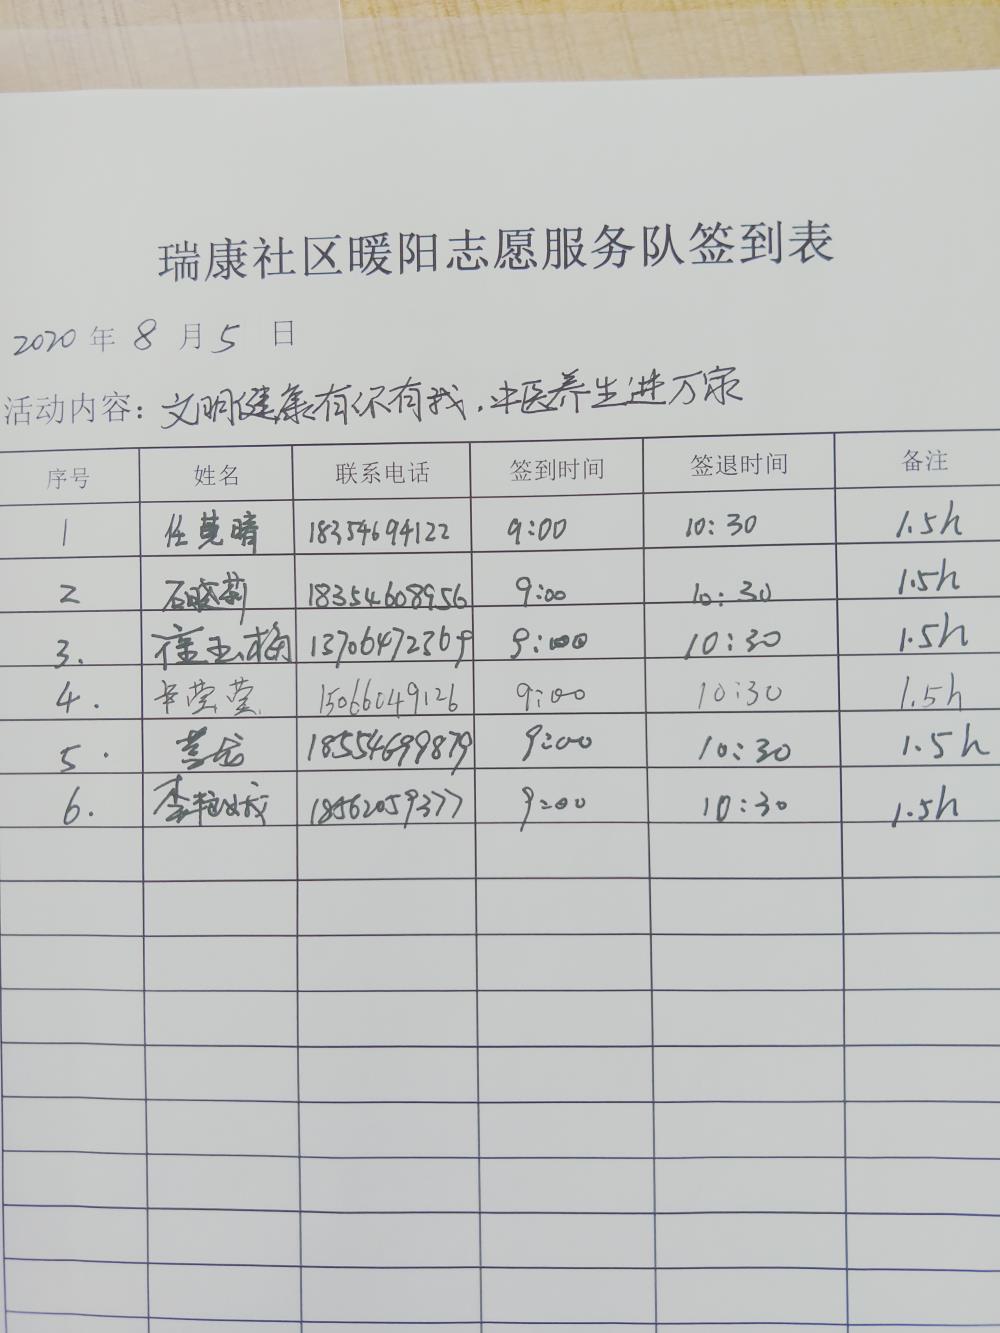 瑞康社区暖阳志愿服务队签到表
2020 年 8 月 5 日
活动内容：文明健康有你有我，中医养生进万家
序号 姓名 联系电话 签到时间 签退时间 备注
1 任莞晴 18354694122 9:00 10:30 1.5h
2 石晓莉 18354608956 9:00 10:30 1.5h
3. 崔玉梅 13706472369 9:00 10:30 1.5h
4. 卞莹莹 15066049126 9:00 10:30 1.5h
5. 18554699879 9:00 10:30 1.5h
6. 李 18562059377 9:00 10:30 1.5h